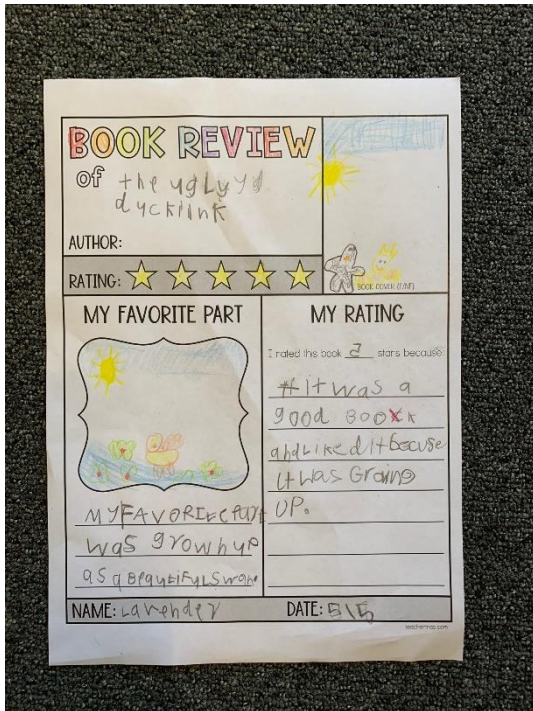 BOOK REVIEW
of the uglyyd
ducklink
AUTHOR:
RATING:
BOOK COVER (F/NF)
MY FAVORITE PART
MY FAVORIEC part
was growhup
as a BeautiFul Swan
MY RATING
I rated this book 2 stars because:
it was a
good Book
and Liked it becuse
it was Graing
UP.
NAME: Lavender
DATE: 5/5